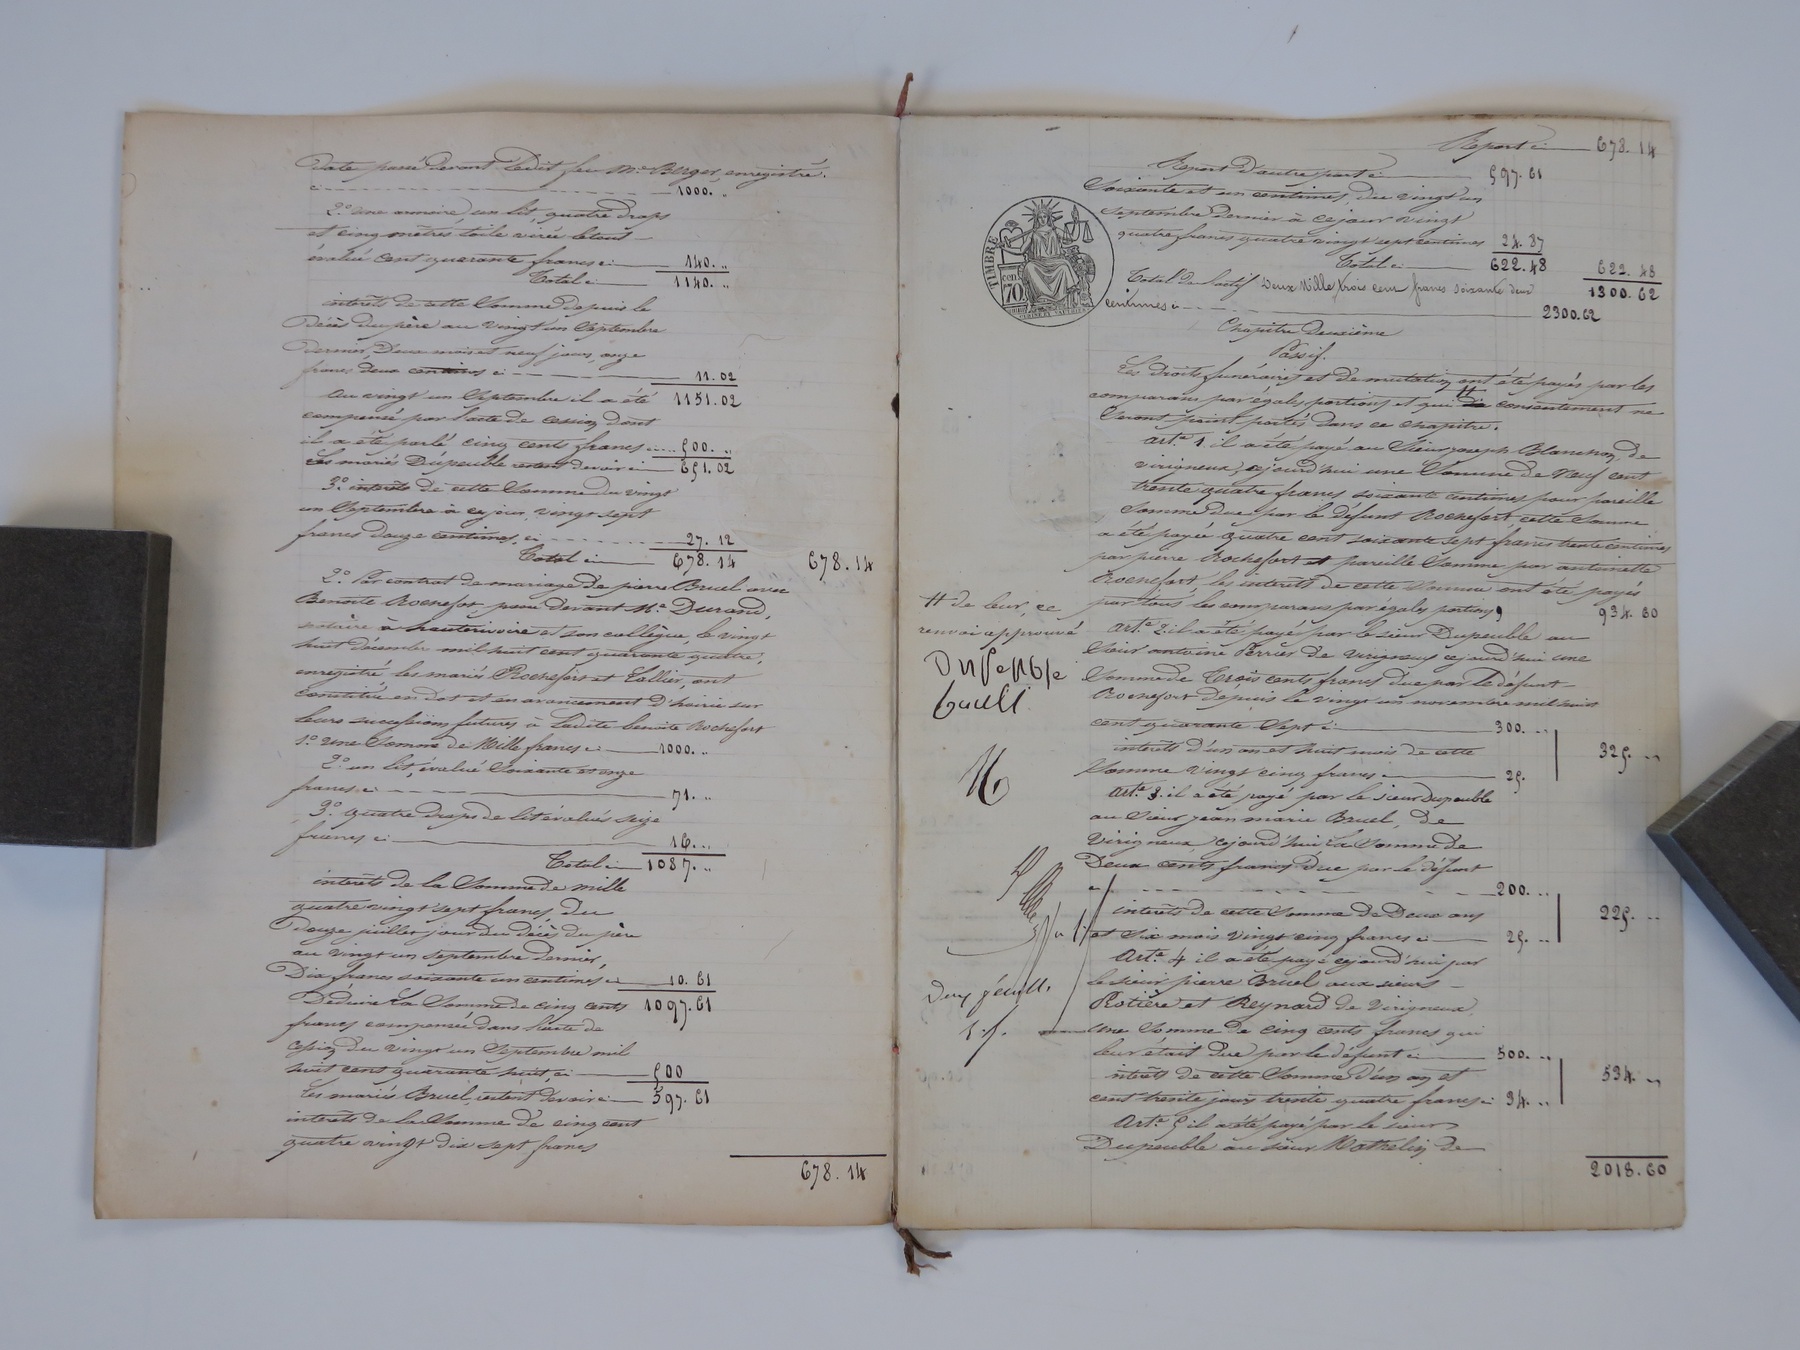 date passé devant ledit feu Me Berger, enregistré.
ci 1000. "
2° une armoire, un lit, quatre draps
et cinq mètres toile
évalué cent quarante francs ci 140. "
Total ci 1140. "
intérêts de cette Somme depuis le
décès du père au vingt un Septembre
dernier, Deux mois et neuf jours, onze
francs deux centimes ci 11.02
Au vingt un Septembre il a été 1151.02
compensé par l'acte de cession dont
il a été parlé cinq cents francs ci 500. "
Les mariés Dupeuble restent devoir ci 651.02
3° intérêts de cette Somme du vingt
un Septembre à ce jour, vingt sept
francs douze centimes, ci 27.12
Total ci 678.14 678.14
2° Par contrat de mariage de pierre Bruel avec
Benoite Rochefort passé devant Me Durand,
notaire à hauterivoire et son collègue le vingt
huit décembre mil huit cent quarante quatre,
enregistré, les mariés Rochefort et Lallier, ont
constitué en dot et en avancement d'hoirie sur
leurs successions futures à Ladite benoite Rochefort
1° une Somme de Mille francs ci 1000. "
2° un lit, évalué Soixante et onze
francs ci 71. "
3° quatre draps de lit évalués seize
francs ci 16. "
Total ci 1087. "
intérêts de la Somme de mille
quatre vingt sept francs, du
Douze juillet jour du décès du père
au vingt un septembre dernier,
Dix francs soixante un centimes ci 10.61
Déduire La Somme de cinq cents 1097.61
francs compensée dans l'acte de
cession du vingt un Septembre mil
huit cent quarante huit, ci 500
Les mariés Bruel, restent devoir ci 597.61
intérêts de la Somme de cinq cent
quatre vingt dix sept francs
678.14
Report ci 678.14
Report d'autre part ci 597.61
Soixante et un centimes, du vingt un
Septembre dernier à ce jour vingt
quatre francs quatre vingt sept centimes 24.87
Total ci 622.48 622.48
TIMBRE
cen 70
1300.62
Total de l'actif Deux Mille trois cent francs soixante deux
centimes ci 2300.62
Chapitre Deuxième
Passif.
Les droits funéraires et de mutation ont été payés par les
comparans par égales portions et qui # de consentement ne
Seront point portés dans ce chapitre.
Art.e 1. il a été payé au Sieur joseph Blanchon, de
virigneux, aujourd'hui une Somme de Neuf cent
trente quatre francs soixante centimes pour pareille
Somme due par le défunt Rochefort, cette Somme
a été payée quatre cent soixante sept francs trente centimes
par pierre Rochefort et pareille Somme par antoinette
Rochefort, les intérêts de cette Somme ont été payés
par tous les comparans par égales portions, 934.60
# de leur, ce
renvoi approuvé
Art.e 2. il a été payé par le sieur Dupeuble au
Sieur antoine Perrier de Virigneux cejourd'hui une
Dupeuble
Somme de Trois cents francs due par le défunt
bruel
Rochefort depuis le vingt un novembre mil huit
cent quarante Sept ci 300. "
intérêts d'un an et huit mois de cette 325. "
Somme vingt cinq francs 25.
Art.e 3. il a été payé par le sieur Dupeuble
au Sieur jean marie Bruel, de
Virigneux cejourd'hui La Somme de
Deux cents francs Due par le défunt
ci 200. "
intérêts de cette Somme de Deux ans 225. "
et Six mois vingt cinq francs ci 25. "
Art.e 4 il a été payé cejourd'hui par
le sieur pierre Bruel aux sieurs
Rotière et Reynard de Virigneux,
une Somme de cinq cents francs qui
leur était Due par le défunt ci 500. "
intérêts de cette Somme d'un an et 534. "
cent trente jours trente quatre francs ci 34. "
Art.e 5 il a été payé par le sieur
Dupeuble au sieur Mathelin de
2018.60